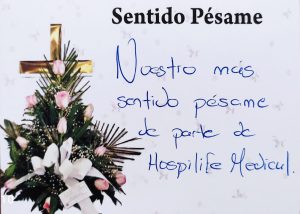 Sentido Pésame
Nuestro más
sentido pésame
de parte de
Hospilife Medical.